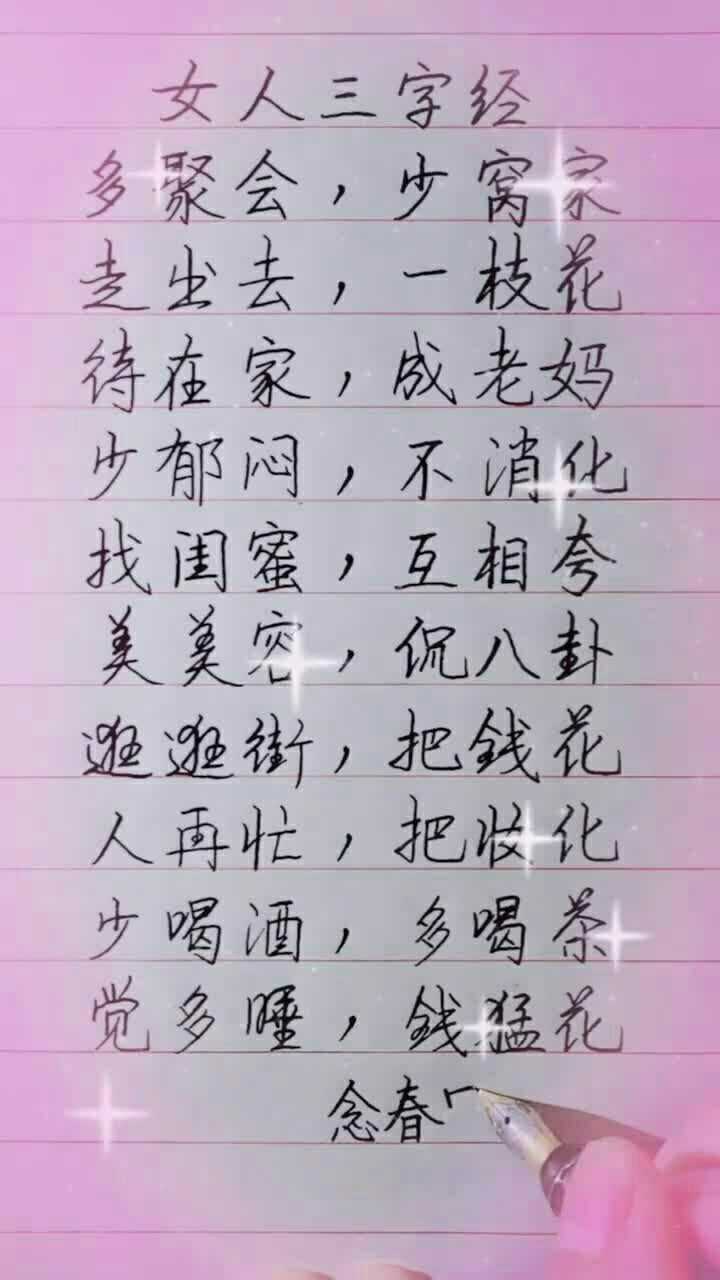 女人三字经
多聚会，少窝家
走出去，一枝花
待在家，成老妈
少郁闷，不消化
找闺蜜，互相夸
美美容，侃八卦
逛逛街，把钱花
人再忙，把妆化
少喝酒，多喝茶
觉多睡，钱猛花
念春